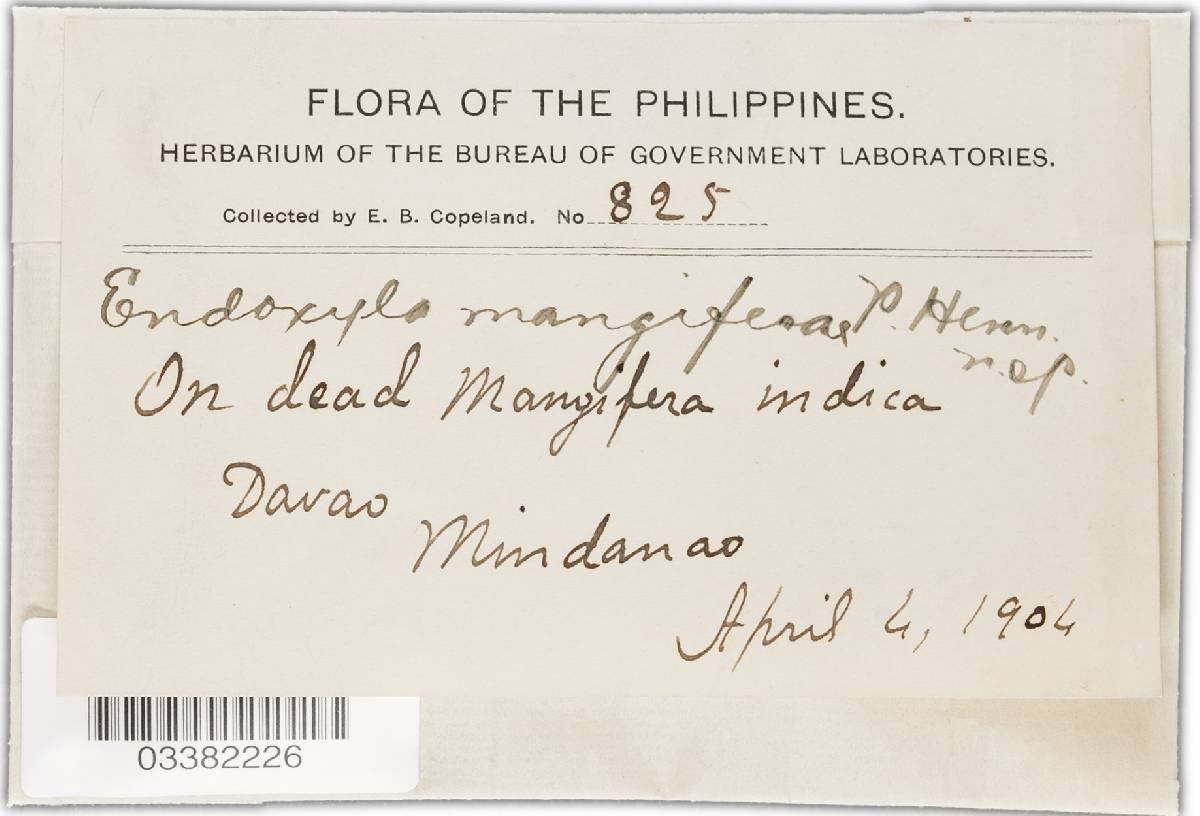 FLORA OF THE PHILIPPINES.
HERBARIUM OF THE BUREAU OF GOVERNMENT LABORATORIES.
Collected by E. B. Copeland. No 825
Endoxyla mangiferae P. Henn.
n. sp.
On dead Mangifera indica
Davao
Mindanao
April 4, 1904
03382226